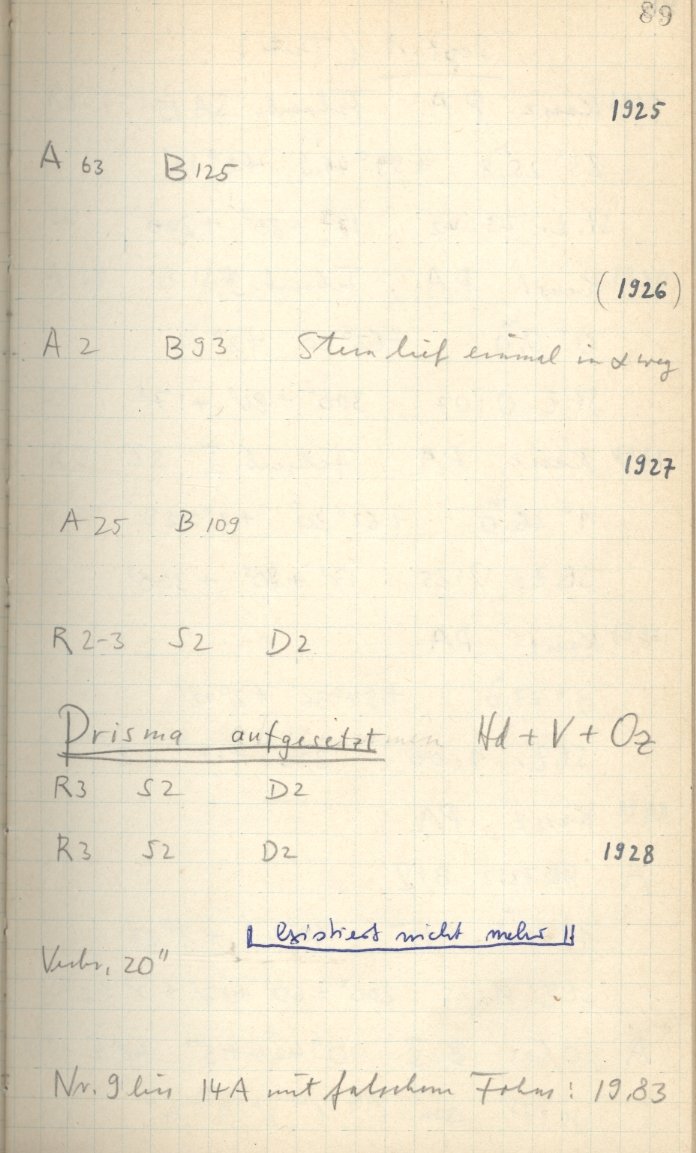 89
1925
A 63 B 125
(1926)
A 2 B 93 Stern lief einmal in α weg
1927
A 25 B 109
R 2-3 S2 D2
Prisma aufgesetzt Hd + V + Oz
R3 S2 D2
R3 S2 D2 1928
existiert nicht mehr !!
20"
Nr. 9 bis 14A mit falschem : 19,83